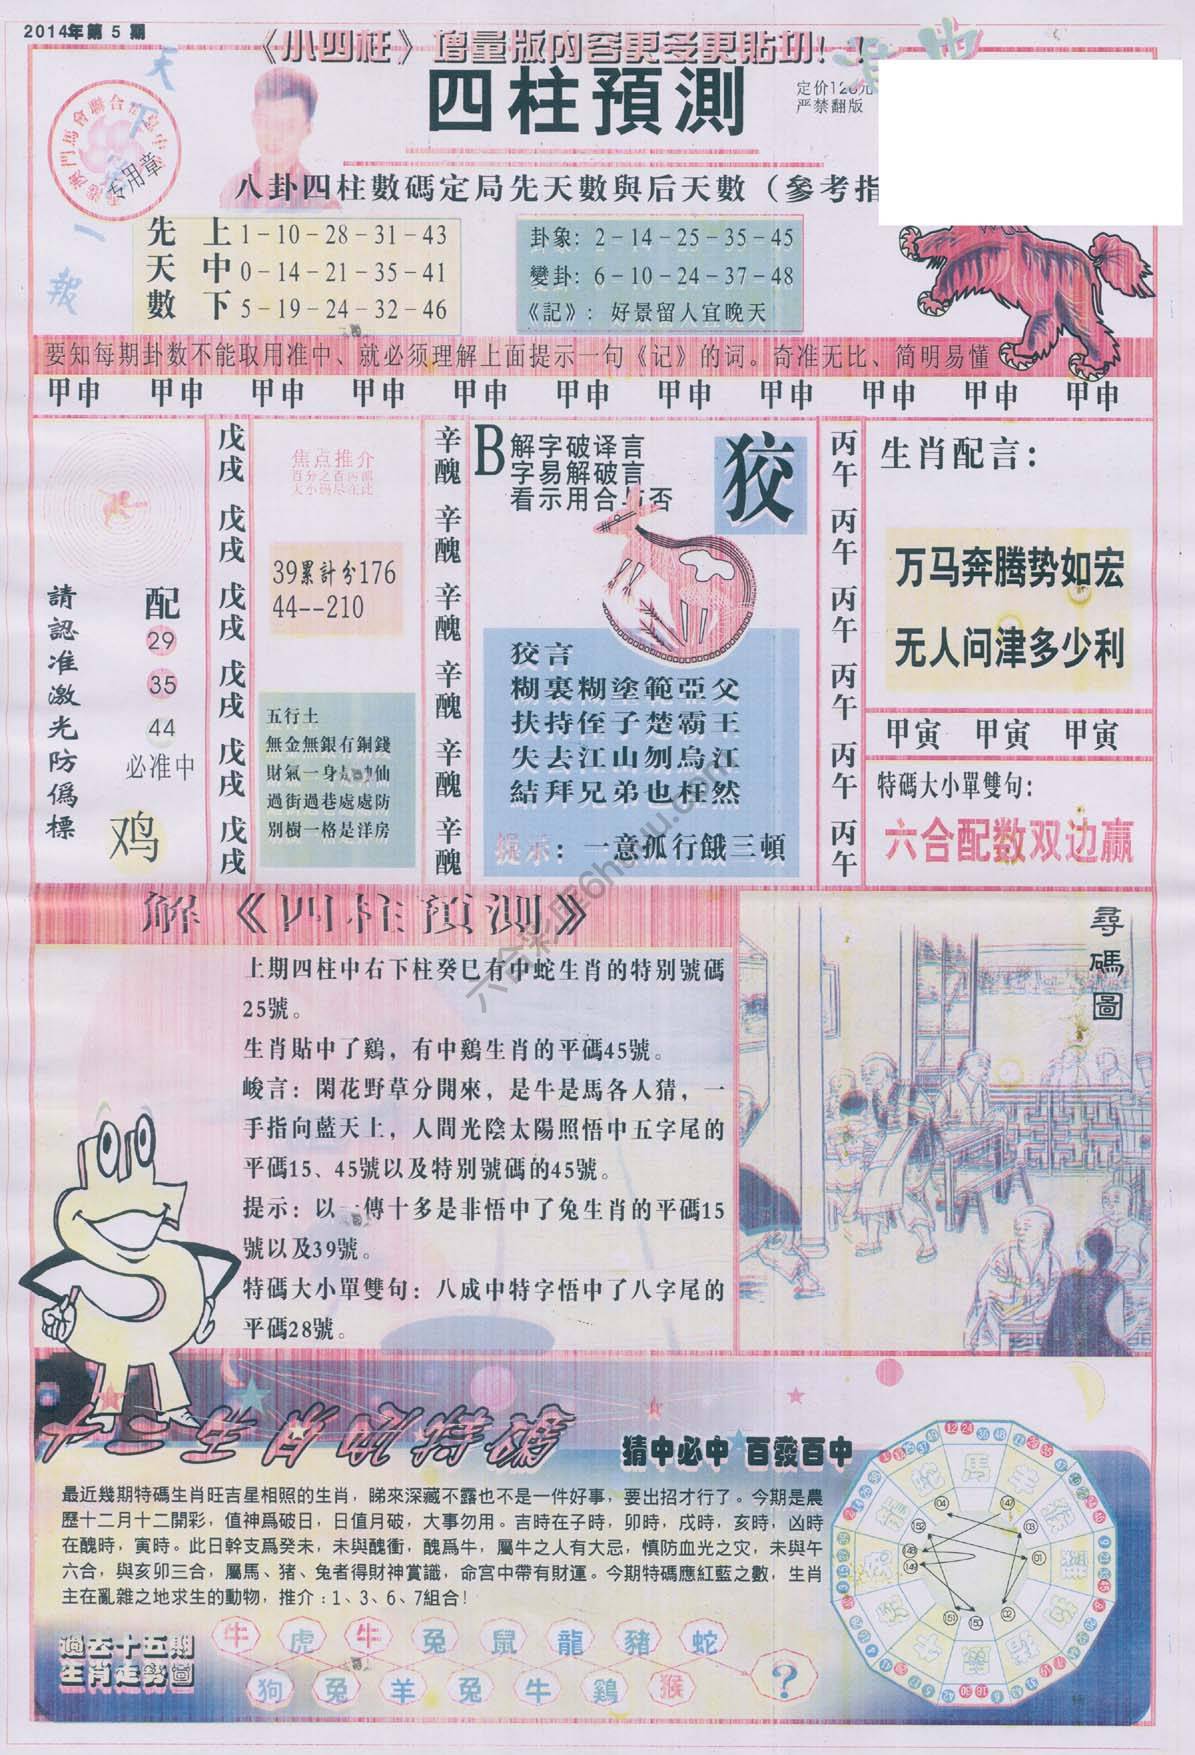 2014年第 5 期
《小四柱》增量版内容更多更貼切！！
天下一報
四柱預測
定价120元
严禁翻版
专用章
八卦四柱數碼定局先天數與后天數（參考指
先天數
上 1－10－28－31－43
中 0－14－21－35－41
下 5－19－24－32－46
卦象：2－14－25－35－45
變卦：6－10－24－37－48
《記》：好景留人宜晚天
要知每期卦数不能取用准中、就必须理解上面提示一句《记》的词。奇准无比、简明易懂
甲申 甲申 甲申 甲申 甲申 甲申 甲申 甲申 甲申 甲申 甲申
請認准激光防僞標
配
29
35
44
必准中
鸡
戊戌 戊戌 戊戌 戊戌 戊戌 戊戌
焦点推介
百分之百内部
大小码尽在此
39累計分176
44--210
五行土
無金無銀有銅錢
財氣一身是神仙
過街過巷處處防
別樹一格是洋房
辛醜 辛醜 辛醜 辛醜 辛醜 辛醜
B
解字破译言
字易解破言
看示用合与否
狡
狡言
糊裏糊塗範亞父
扶持侄子楚霸王
失去江山刎烏江
結拜兄弟也枉然
提示：一意孤行餓三頓
丙午 丙午 丙午 丙午 丙午 丙午
生肖配言：
万马奔腾势如宏
无人问津多少利
甲寅 甲寅 甲寅
特碼大小單雙句：
六合配数双边赢
解《四柱預測》
上期四柱中右下柱癸巳有中蛇生肖的特别號碼
25號。
生肖貼中了鷄，有中鷄生肖的平碼45號。
峻言：閑花野草分開來，是牛是馬各人猜，一
手指向藍天上，人間光陰太陽照悟中五字尾的
平碼15、45號以及特别號碼的45號。
提示：以一傳十多是非悟中了兔生肖的平碼15
號以及39號。
特碼大小單雙句：八成中特字悟中了八字尾的
平碼28號。
尋碼圖
猜中必中 百發百中
最近幾期特碼生肖旺吉星相照的生肖，睇來深藏不露也不是一件好事，要出招才行了。今期是農
歷十二月十二開彩，值神爲破日，日值月破，大事勿用。吉時在子時，卯時，戌時，亥時，凶時
在醜時，寅時。此日幹支爲癸未，未與醜衝，醜爲牛，屬牛之人有大忌，慎防血光之灾，未與午
六合，與亥卯三合，屬馬、猪、兔者得財神賞識，命宫中帶有財運。今期特碼應紅藍之數，生肖
主在亂雜之地求生的動物，推介：1、3、6、7組合！
過去十五期
生肖走勢圖
牛 虎 牛 兔 鼠 龍 豬 蛇
狗 兔 羊 兔 牛 鷄 猴 ？
蛇 馬 羊
六合彩库6huu.com